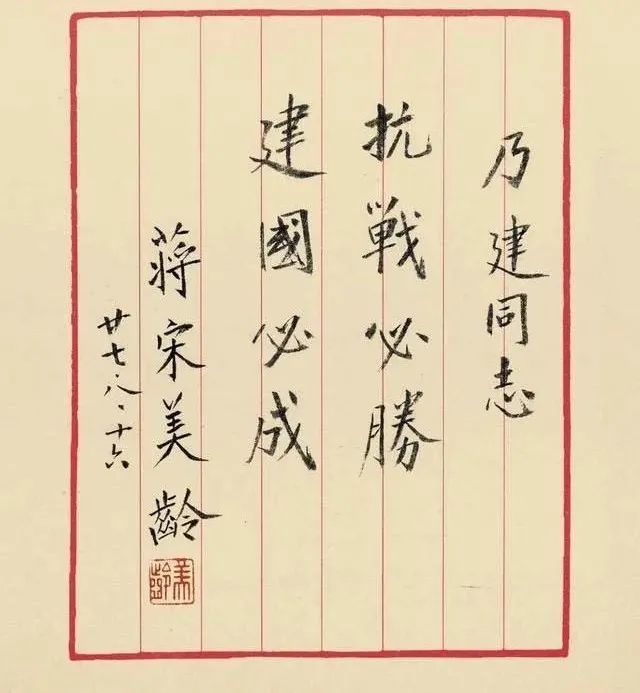 乃建同志
抗戰必勝
建國必成
蔣宋美齡
廿七、八、十六
美齡